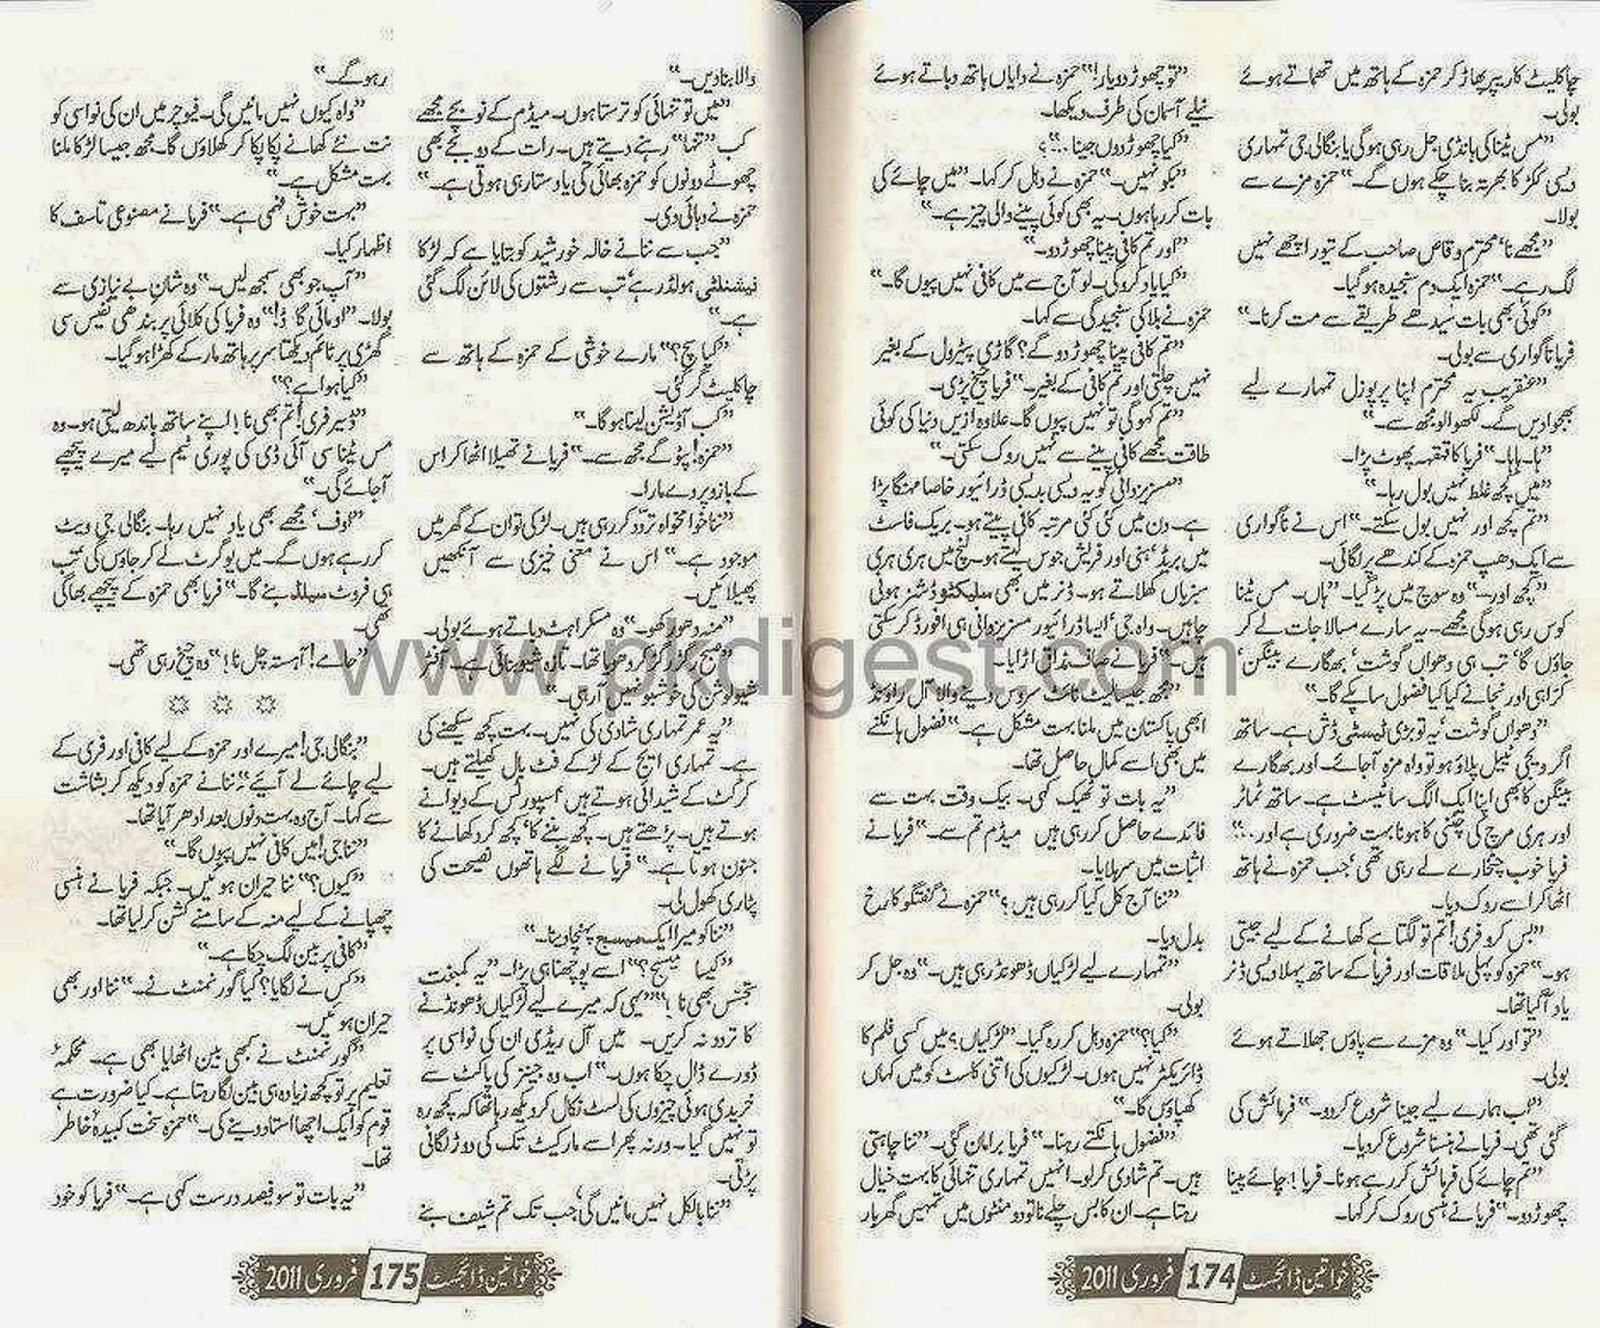 چاکلیٹ کا ریپر پھاڑ کر حمزہ کے ہاتھ میں تھماتے ہوئے
بولی۔
”مس ٹینا کی ہانڈی جل رہی ہوگی یا بنگالی جی تمہاری
دیسی ککڑ کا بھرتہ بنا چکے ہوں گے۔“ حمزہ مزے سے
بولا۔
”مجھے نا‘ محترم وقاص صاحب کے تیور اچھے نہیں
لگ رہے۔“ حمزہ ایک دم سنجیدہ ہو گیا۔
”کوئی بھی بات سیدھے طریقے سے مت کرنا۔“
فریا ناگواری سے بولی۔
”عنقریب یہ محترم اپنا پرپوزل تمہارے لیے
بھجوا دیں گے۔ لکھوا لو مجھ سے۔“
”ہا۔ ہاہا۔“ فریا کا قہقہہ پھوٹ پڑا۔
”میں کچھ غلط نہیں بول رہا۔“
”تم کچھ اور نہیں بول سکتے۔“ اس نے ناگواری
سے ایک دھپ حمزہ کے کندھے پر لگائی۔
”کچھ اور۔“ وہ سوچ میں پڑ گیا۔ ”ہاں۔ مس ٹینا
کوس رہی ہوگی مجھے۔ یہ سارے مسالا جات لے کر
جاؤں گا‘ تب ہی دھواں گوشت‘ بھگارے بینگن‘
کڑاہی اور نجانے کیا کیا فضول سا پکے گا۔“
”دھواں گوشت‘ یہ تو بڑی ٹیسٹی ڈش ہے۔ ساتھ
اگر ویجی ٹیبل پلاؤ ہو تو واہ مزہ آجائے۔ اور بھگارے
بینگن کا بھی اپنا ایک الگ سا ٹیسٹ ہے۔ ساتھ ٹماٹر
اور ہری مرچ کی چٹنی کا ہونا بہت ضروری ہے اور۔۔“
فریا خوب چٹخارے لے رہی تھی‘ جب حمزہ نے ہاتھ
اٹھا کر اسے روک دیا۔
”بس کرو فری! تم تو لگتا ہے کھانے کے لیے جیتی
ہو۔“ حمزہ کو پہلی ملاقات اور فریا کے ساتھ پہلا دیسی ڈنر
یاد آگیا تھا۔
”تو اور کیا۔“ وہ مزے سے پاؤں جھلاتے ہوئے
بولی۔
”اب ہمارے لیے جینا شروع کردو۔“ فرمائش کی
گئی تھی۔ فریا نے ہنسنا شروع کردیا۔
”تم چائے کی فرمائش کررہے ہونا۔ فریا! چائے پینا
چھوڑ دو۔“ فریا نے ہنسی روک کر کہا۔
”تو چھوڑ دو یار!“ حمزہ نے دایاں ہاتھ دباتے ہوئے
نیلے آسمان کی طرف دیکھا۔
”کیا چھوڑ دوں جینا۔۔؟“
”بکو نہیں۔“ حمزہ نے دہل کر کہا۔ ”میں چائے کی
بات کر رہا ہوں۔ یہ بھی کوئی پینے والی چیز ہے۔“
”اور تم کافی پینا چھوڑ دو۔“
”کیا یاد کروگی۔ لو آج سے میں کافی نہیں پیوں گا۔“
حمزہ نے بلا کی سنجیدگی سے کہا۔
”تم کافی پینا چھوڑ دو گے؟ گاڑی پیٹرول کے بغیر
نہیں چلتی اور تم کافی کے بغیر۔“ فریا چیخ پڑی۔
”تم کہو گی تو نہیں پیوں گا۔ علاوہ ازیں دنیا کی کوئی
طاقت مجھے کافی پینے سے نہیں روک سکتی۔“
”مسز یزدانی کو یہ دیسی بدیسی ڈرائیور خاصا مہنگا پڑا
ہے۔ دن میں کئی کئی مرتبہ کافی پیتے ہو۔ بریک فاسٹ
میں بریڈ‘ ہنی اور فریش جوس لیتے ہو۔ لنچ میں ہری ہری
سبزیاں کھلاتے ہو۔ ڈنر میں بھی سلیکٹو ڈشنز ہوئی
چاہیں۔ واہ جی‘ ایسا ڈرائیور مسز یزدانی ہی افورڈ کر سکتی
ہیں۔“ فریا نے صاف مذاق اڑایا۔
”مجھ جیسا لیٹ نائٹ سروس دینے والا آل راؤنڈ
ابھی پاکستان میں ملنا بہت مشکل ہے۔“ فضول ہانکنے
میں بھی اسے کمال حاصل تھا۔
”یہ بات تو ٹھیک کہی۔ بیک وقت بہت سے
فائدے حاصل کر رہی ہیں میڈم تم سے۔“ فریا نے
اثبات میں سر ہلایا۔
”ننا آج کل کیا کر رہی ہیں؟“ حمزہ نے گفتگو کا رخ
بدل دیا۔
”تمہارے لیے لڑکیاں ڈھونڈ رہی ہیں۔“ وہ جل کر
بولی۔
”کیا؟“ حمزہ دہل کر رہ گیا۔ ”لڑکیاں؟ میں کسی فلم کا
ڈائریکٹر نہیں ہوں۔ لڑکیوں کی اتنی کاسٹ کو میں کہاں
کھپاؤں گا۔“
”فضول ہانکتے رہنا۔“ فریا برا مان گئی۔ ”ننا چاہتی
ہیں۔ تم شادی کر لو۔ انہیں تمہاری تنہائی کا بہت خیال
رہتا ہے۔ ان کا بس چلے نا تو دو منٹوں میں تمہیں گھر بار
خواتین ڈائجسٹ 174 فروری 2011
والا بنا دیں۔“
”میں تو تنہائی کو ترستا ہوں۔ میڈم کے نو بچے مجھے
کب ”تنہا“ رہنے دیتے ہیں۔ رات کے دو بجے بھی
چھوٹے دونوں کو حمزہ بھائی کی یاد ستا رہی ہوتی ہے۔“
حمزہ نے دہائی دی۔
”جب سے ننا نے خالہ خورشید کو بتایا ہے کہ لڑکا
نیشنلٹی ہولڈر ہے‘ تب سے رشتوں کی لائن لگ گئی
ہے۔“
”کیا سچ؟“ مارے خوشی کے حمزہ کے ہاتھ سے
چاکلیٹ گر گئی۔
”کب آڈیشن لینا ہوگا۔“
”حمزہ! پٹو گے مجھ سے۔“ فریا نے تھیلا اٹھا کر اس
کے بازو پر دے مارا۔
”ننا خوا مخواہ تردّد کر رہی ہیں۔ لڑکی تو ان کے گھر میں
موجود ہے۔“ اس نے معنی خیزی سے آنکھیں
پھیلائیں۔
”منہ دھو رکھو۔“ وہ مسکراہٹ دباتے ہوئے بولی۔
”صبح رگڑ رگڑ کر دھویا تھا۔ تازہ شیو بنائی ہے۔ آفٹر
شیو لوشن کی خوشبو نہیں آرہی۔“
”یہ عمر تمہاری شادی کی نہیں۔ بہت کچھ سیکھنے کی
ہے۔ تمہاری ایج کے لڑکے فٹ بال کھیلتے ہیں۔
کرکٹ کے شیدائی ہوتے ہیں‘ اسپورٹس کے دیوانے
ہوتے ہیں۔ پڑھتے ہیں۔ کچھ بننے کا‘ کچھ کر دکھانے کا
جنون ہوتا ہے۔“ فریا نے لگے ہاتھوں نصیحت کی
پٹاری کھول لی۔
”ننا کو میرا ایک میسج پہنچا دینا۔“
”کیسا میسج؟“ اسے پوچھنا ہی پڑا۔ ”یہ کمبخت
تجسّس بھی نا!“ ”یہی کہ میرے لیے لڑکیاں ڈھونڈنے
کا تردد نہ کریں۔ میں آل ریڈی ان کی نواسی پر
ڈورے ڈال چکا ہوں۔“ اب وہ جینز کی پاکٹ سے
خریدی ہوئی چیزوں کی لسٹ نکال کر دیکھ رہا تھا کہ کچھ رہ
تو نہیں گیا۔ ورنہ پھر اسے مارکیٹ تک کی دوڑ لگانی
پڑتی۔
”ننا بالکل نہیں مانیں گی‘ جب تک تم شیف بنے
رہو گے۔“
”واہ کیوں نہیں مانیں گی۔ فیوچر میں ان کی نواسی کو
نت نئے کھانے پکا پکا کر کھلاؤں گا۔ مجھ جیسا لڑکا ملنا
بہت مشکل ہے۔“
”بہت خوش فہمی ہے۔“ فریا نے مصنوعی تاسف کا
اظہار کیا۔
”آپ جو بھی سمجھ لیں۔“ وہ شان بے نیازی سے
بولا۔ ”او مائی گاڈ!“ وہ فریا کی کلائی پر بندھی نفیس سی
گھڑی پر ٹائم دیکھتا سر پر ہاتھ مار کے کھڑا ہو گیا۔
”کیا ہوا ہے؟“
”ڈیر فری! تم بھی نا! اپنے ساتھ باندھ لیتی ہو۔ وہ
مس ٹینا سی آئی ڈی کی پوری ٹیم لیے میرے پیچھے
آجائے گی۔“
”اوف‘ مجھے بھی یاد نہیں رہا۔ بنگالی جی ویٹ
کر رہے ہوں گے۔ میں یوگرٹ لے کر جاؤں گی‘ تب
ہی فروٹ سیلڈ بنے گا۔“ فریا بھی حمزہ کے پیچھے بھاگی
تھی۔
”جارے! آہستہ چل نا!“ وہ چیخ رہی تھی۔
”بنگالی جی! میرے اور حمزہ کے لیے کافی اور فری کے
لیے چائے لے آئیے۔“ ننا نے حمزہ کو دیکھ کر بشاشت
سے کہا۔ آج وہ بہت دنوں بعد ادھر آیا تھا۔
”ننا جی! میں کافی نہیں پیوں گا۔“
”کیوں؟“ ننا حیران ہوئیں۔ جبکہ فریا نے ہنسی
چھپانے کے لیے منہ کے سامنے کشن کر لیا تھا۔
”کافی پر بین لگ چکا ہے۔“
”کس نے لگایا؟ کیا گورنمنٹ نے۔“ ننا اور بھی
حیران ہوئیں۔
”گورنمنٹ نے کبھی بین اٹھایا بھی ہے۔ محکمۂ
تعلیم پر تو کچھ زیادہ ہی بین لگا رہتا ہے۔ کیا ضرورت ہے
قوم کو ایک اچھا استاد دینے کی۔“ حمزہ سخت کبیدہ خاطر
تھا۔
”یہ بات تو سو فیصد درست کہی ہے۔“ فریا کو خود
خواتین ڈائجسٹ 175 فروری 2011
www.pkdigest.com